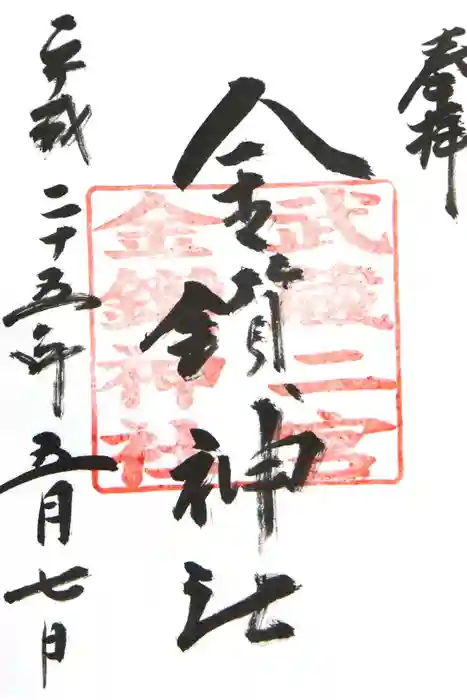 奉拝
金鑚神社
平成二十五年五月七日
武蔵二宮
金鑚神社